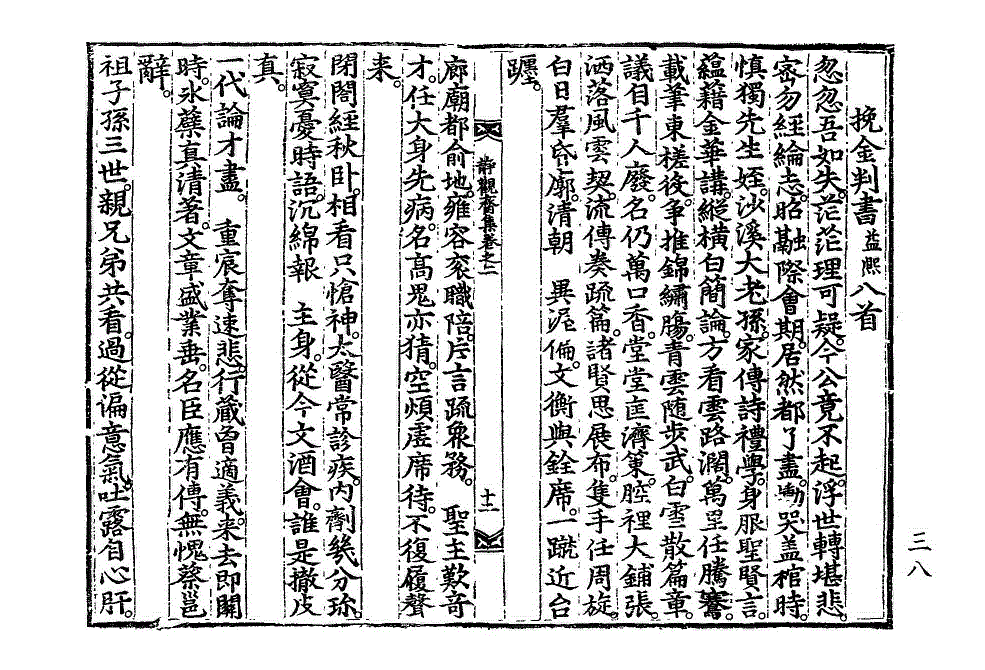 挽金判書 益熙 八首
忽忽吾如失。茫茫理可疑。今公竟不起。浮世轉堪悲。
密勿經綸志。昭融際會期。居然都了盡。慟哭蓋棺時。
慎獨先生姪。沙溪大老孫。家傳詩禮學。身服聖賢言。
蘊藉金華講。縱橫白簡論。方看雲路濶。萬里任騰騫。
載筆東槎後。爭推錦繡膓。靑雲随步武。白雪散篇章。
議自千人廢。名仍萬口香。堂堂匡濟策。腔裡大鋪張。
洒落風雲契。流傳奏疏篇。諸賢思展布。隻手任周旋。
白日羣昏廓。淸朝 異泥偏。文衡與銓席。一蹴近台
躔。
靜觀齋集卷之二
十二
廊廟都俞地。雍容衮職陪。片言疏衆務。 聖主歎奇
才。任大身先病。名高鬼亦猜。空煩虛席待。不復履聲
来。
閉閤經秋卧。相看只愴神。太醫常診疾。內劑幾分珎。
寂寞憂時語。沉綿報 主身。從今文酒會。誰是撤皮
真。
一代論才盡。 重宸奪速悲。行藏曾適義。来去卽關
時。氷蘗真淸著。文章盛業垂。名臣應有傳。無愧蔡邕
辭。
祖子孫三世。親兄弟共看。過從偏意氣。吐露自心肝。
三八